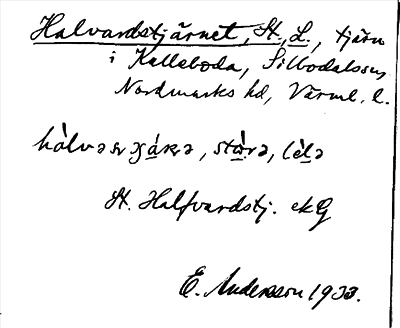 Halvardstjärnet, St., L., tjärn
i Kalleboda, Silbodals sn,
Nordmarks hd, Värml. l.
St. Halfvardstj. ekG
E. Andersson 1933.